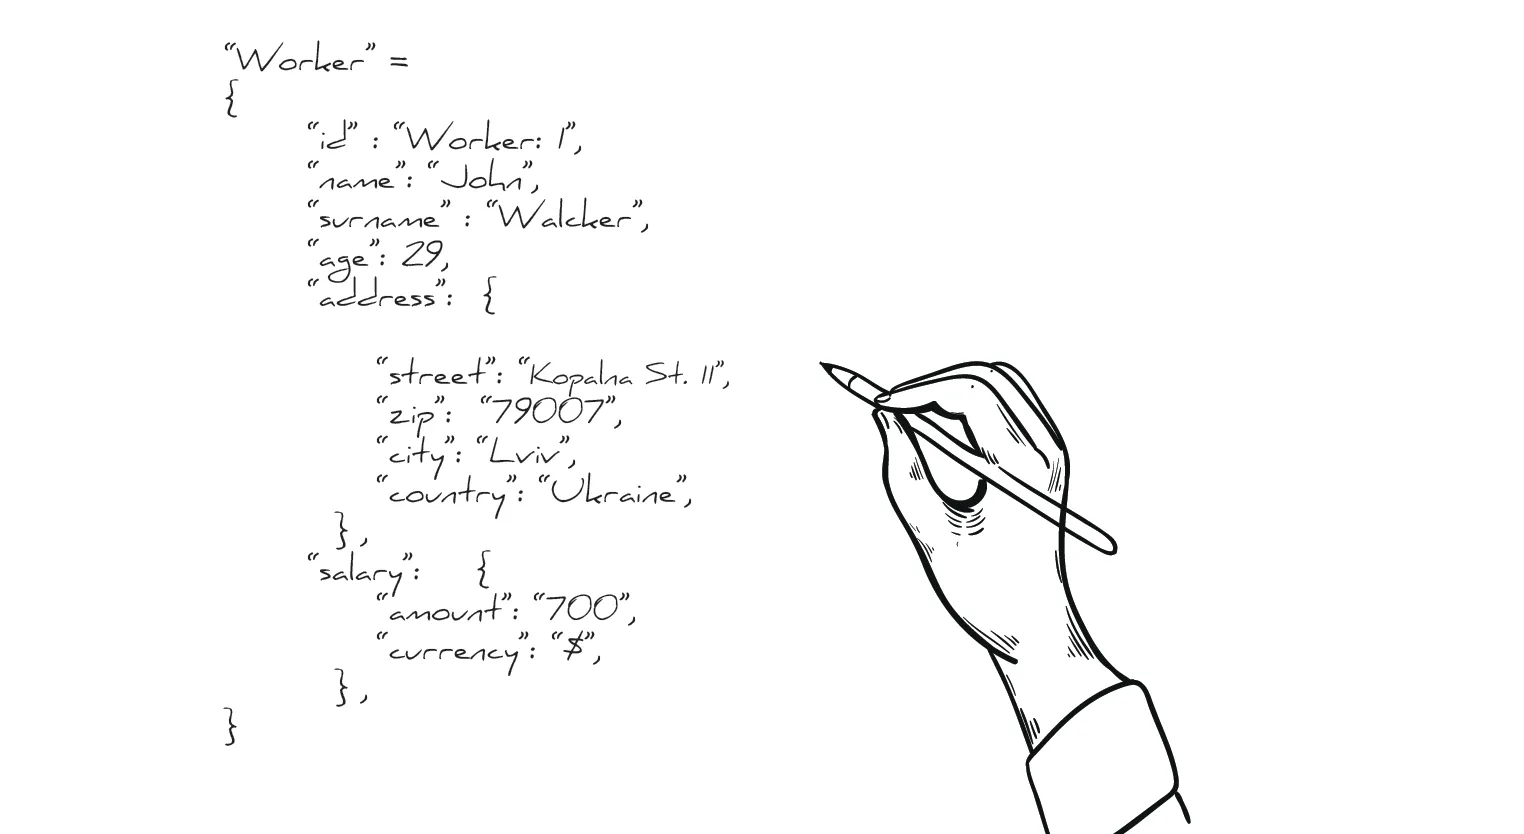 “Worker” =
{
“id” : “Worker: 1”,
“name”: “John”,
“surname” : “Walcker”,
“age”: 29,
“address”: {
“street”: “Kopalna St. 11”,
“zip”: “79007”,
“city”: “Lviv”,
“country”: “Ukraine”,
},
“salary”: {
“amount”: “700”,
“currency”: “$”,
},
}